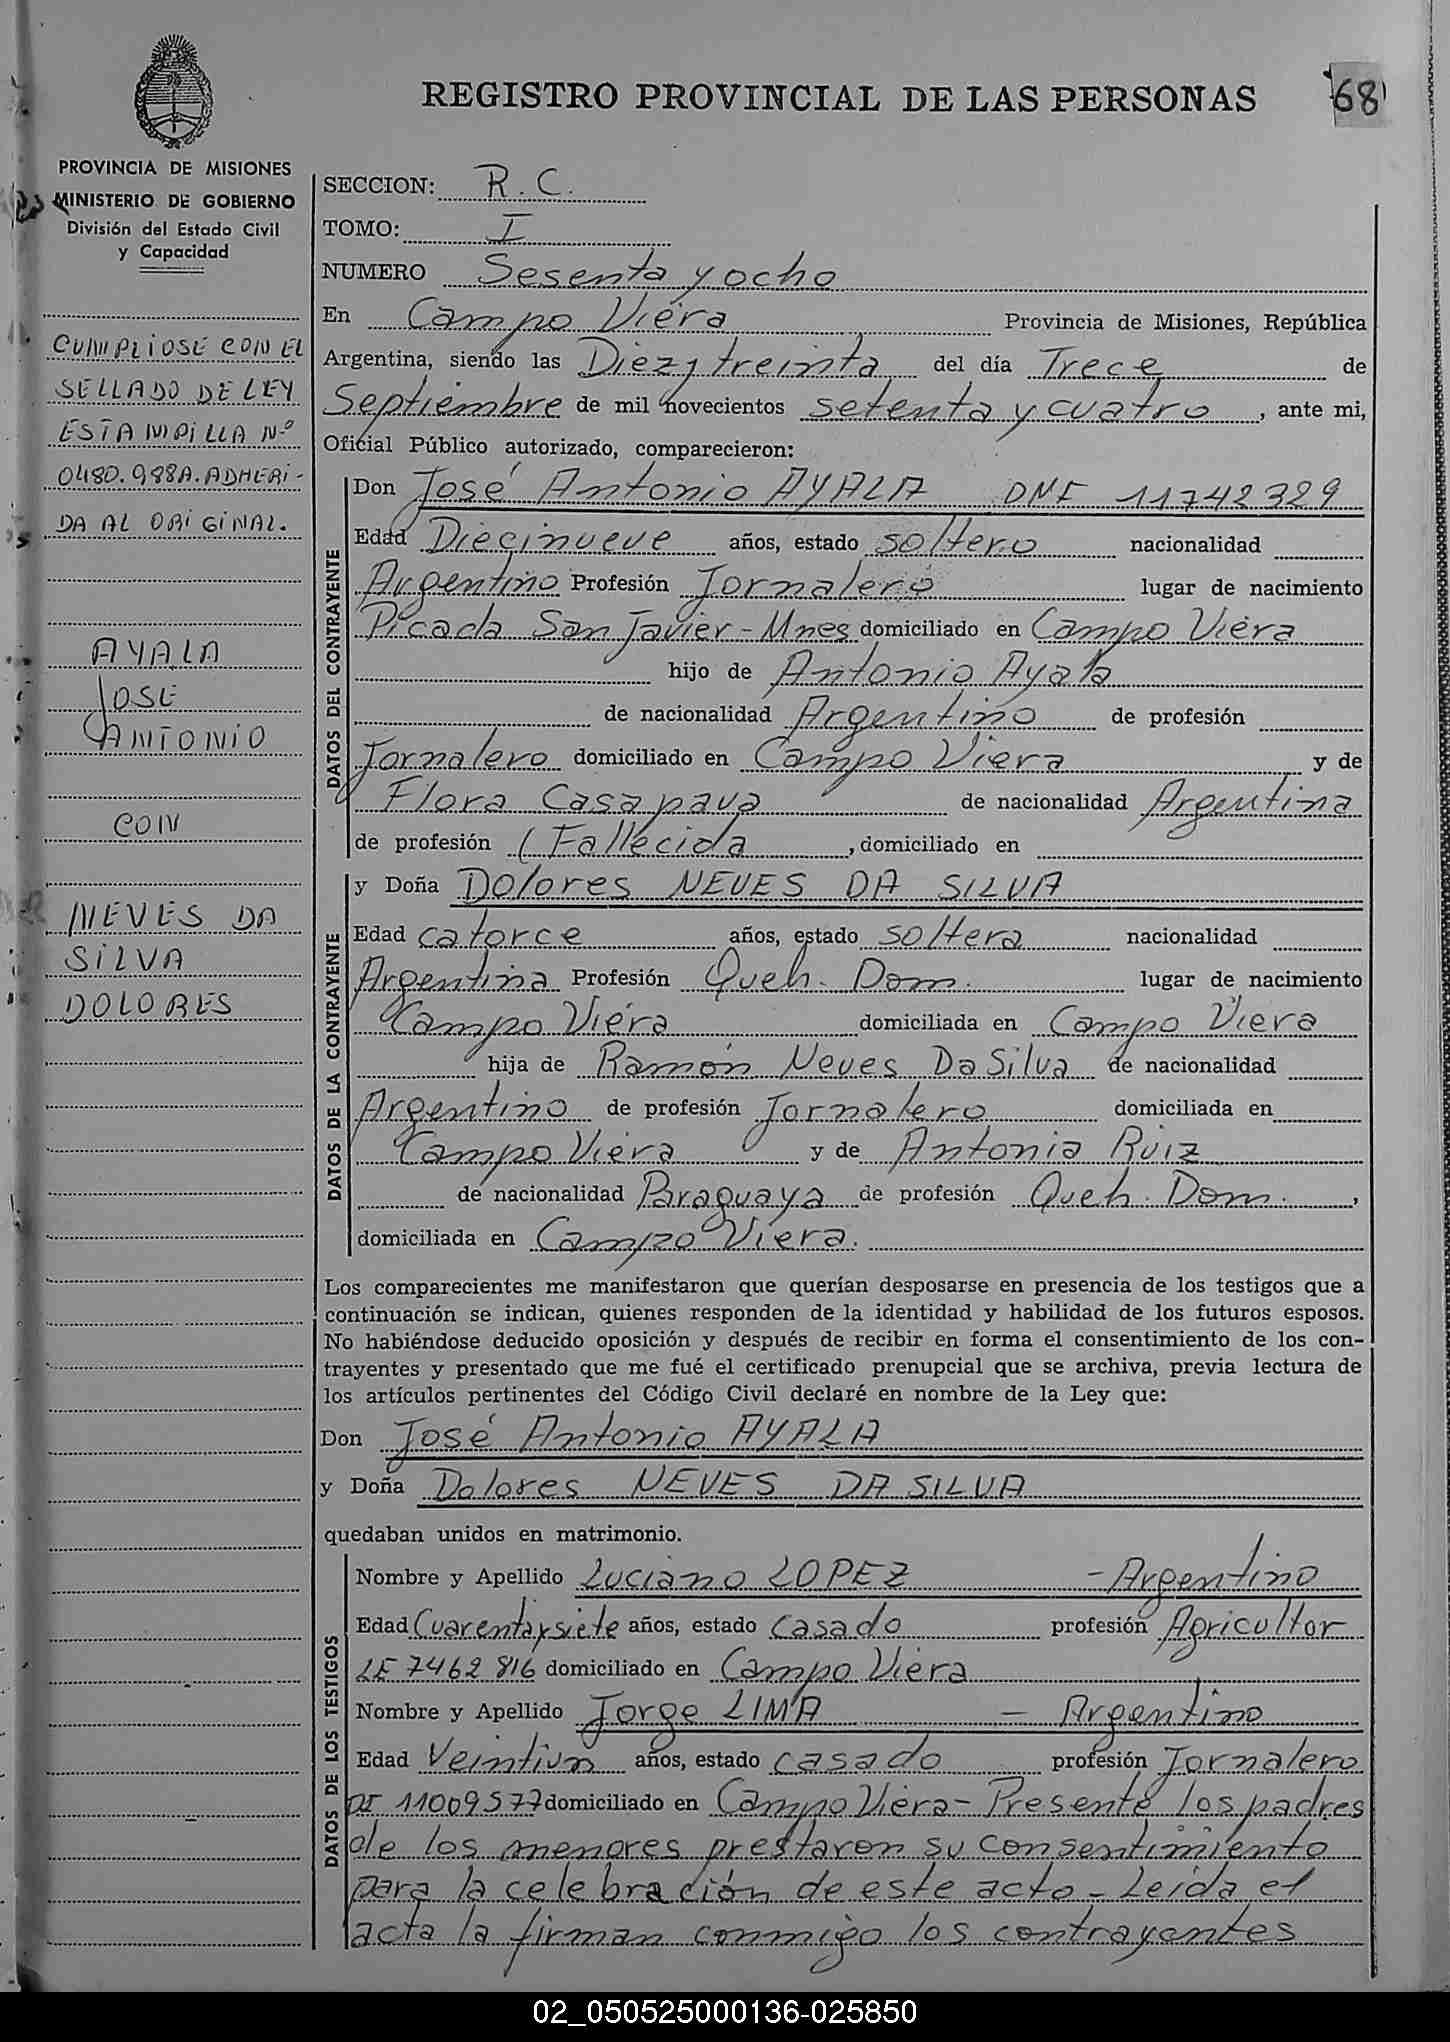 REGISTRO PROVINCIAL DE LAS PERSONAS
68
PROVINCIA DE MISIONES
MINISTERIO DE GOBIERNO
División del Estado Civil
y Capacidad
CUMPLIOSE CON EL
SELLADO DE LEY
ESTAMPILLA Nº
0480.988A. ADHERI-
DA AL ORIGINAL.
AYALA
JOSE
ANTONIO
CON
NEVES DA
SILVA
DOLORES
SECCION: R. C.
TOMO: I
NUMERO Sesenta y ocho
En Campo Viera Provincia de Misiones, República
Argentina, siendo las Diez y treinta del día Trece de
Septiembre de mil novecientos setenta y cuatro, ante mi,
Oficial Público autorizado, comparecieron:
DATOS DEL CONTRAYENTE
Don José Antonio AYALA DNI 11742329
Edad Diecinueve años, estado soltero nacionalidad
Argentino Profesión Jornalero lugar de nacimiento
Picada San Javier - Mnes domiciliado en Campo Viera
hijo de Antonio Ayala
de nacionalidad Argentino de profesión
Jornalero domiciliado en Campo Viera y de
Flora Casapava de nacionalidad Argentina
de profesión (Fallecida , domiciliado en
DATOS DE LA CONTRAYENTE
y Doña Dolores NEVES DA SILVA
Edad catorce años, estado soltera nacionalidad
Argentina Profesión Queh. Dom. lugar de nacimiento
Campo Viera domiciliada en Campo Viera
hija de Ramón Neves Da Silva de nacionalidad
Argentino de profesión Jornalero domiciliada en
Campo Viera y de Antonia Ruiz
de nacionalidad Paraguaya de profesión Queh. Dom. ,
domiciliada en Campo Viera.
Los comparecientes me manifestaron que querían desposarse en presencia de los testigos que a
continuación se indican, quienes responden de la identidad y habilidad de los futuros esposos.
No habiéndose deducido oposición y después de recibir en forma el consentimiento de los con-
trayentes y presentado que me fué el certificado prenupcial que se archiva, previa lectura de
los artículos pertinentes del Código Civil declaré en nombre de la Ley que:
Don José Antonio AYALA
y Doña Dolores NEVES DA SILVA
quedaban unidos en matrimonio.
DATOS DE LOS TESTIGOS
Nombre y Apellido Luciano LOPEZ - Argentino
Edad Cuarenta y siete años, estado casado profesión Agricultor
LE 7462816 domiciliado en Campo Viera
Nombre y Apellido Jorge LIMA - Argentino
Edad Veintiun años, estado casado profesión Jornalero
DI 11009577 domiciliado en Campo Viera - Presente los padres
de los menores prestaron su consentimiento
para la celebración de este acto - Leida el
acta la firman conmigo los contrayentes
02_050525000136-025850